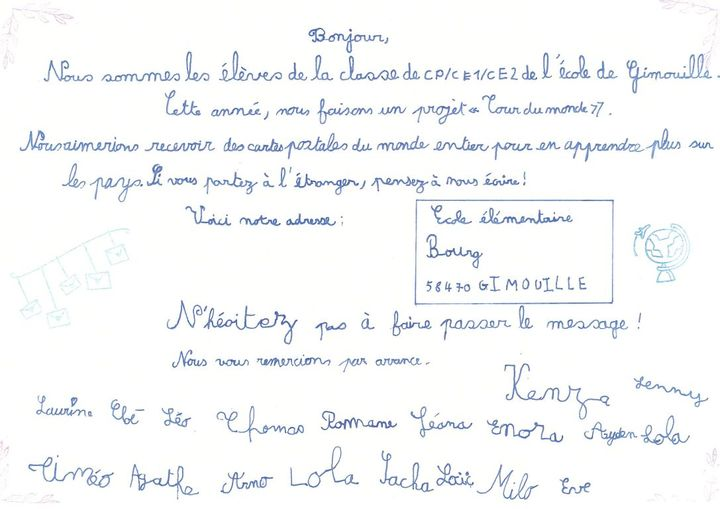 Bonjour,
Nous sommes les élèves de la classe de CP/CE1/CE2 de l'école de Gimouille.
Cette année, nous faisons un projet « Tour du monde ».
Nous aimerions recevoir des cartes postales du monde entier pour en apprendre plus sur
les pays. Si vous partez à l'étranger, pensez à nous écrire!
Voici notre adresse :
Ecole élémentaire
Bourg
58470 GIMOUILLE
N'hésitez pas à faire passer le message !
Nous vous remercions par avance.
Kenza Lenny
Laurine Léo Thomas Romane Léana Enora Ayden Lola
Timéo Agathe Arno Lola Sacha Milo Eve